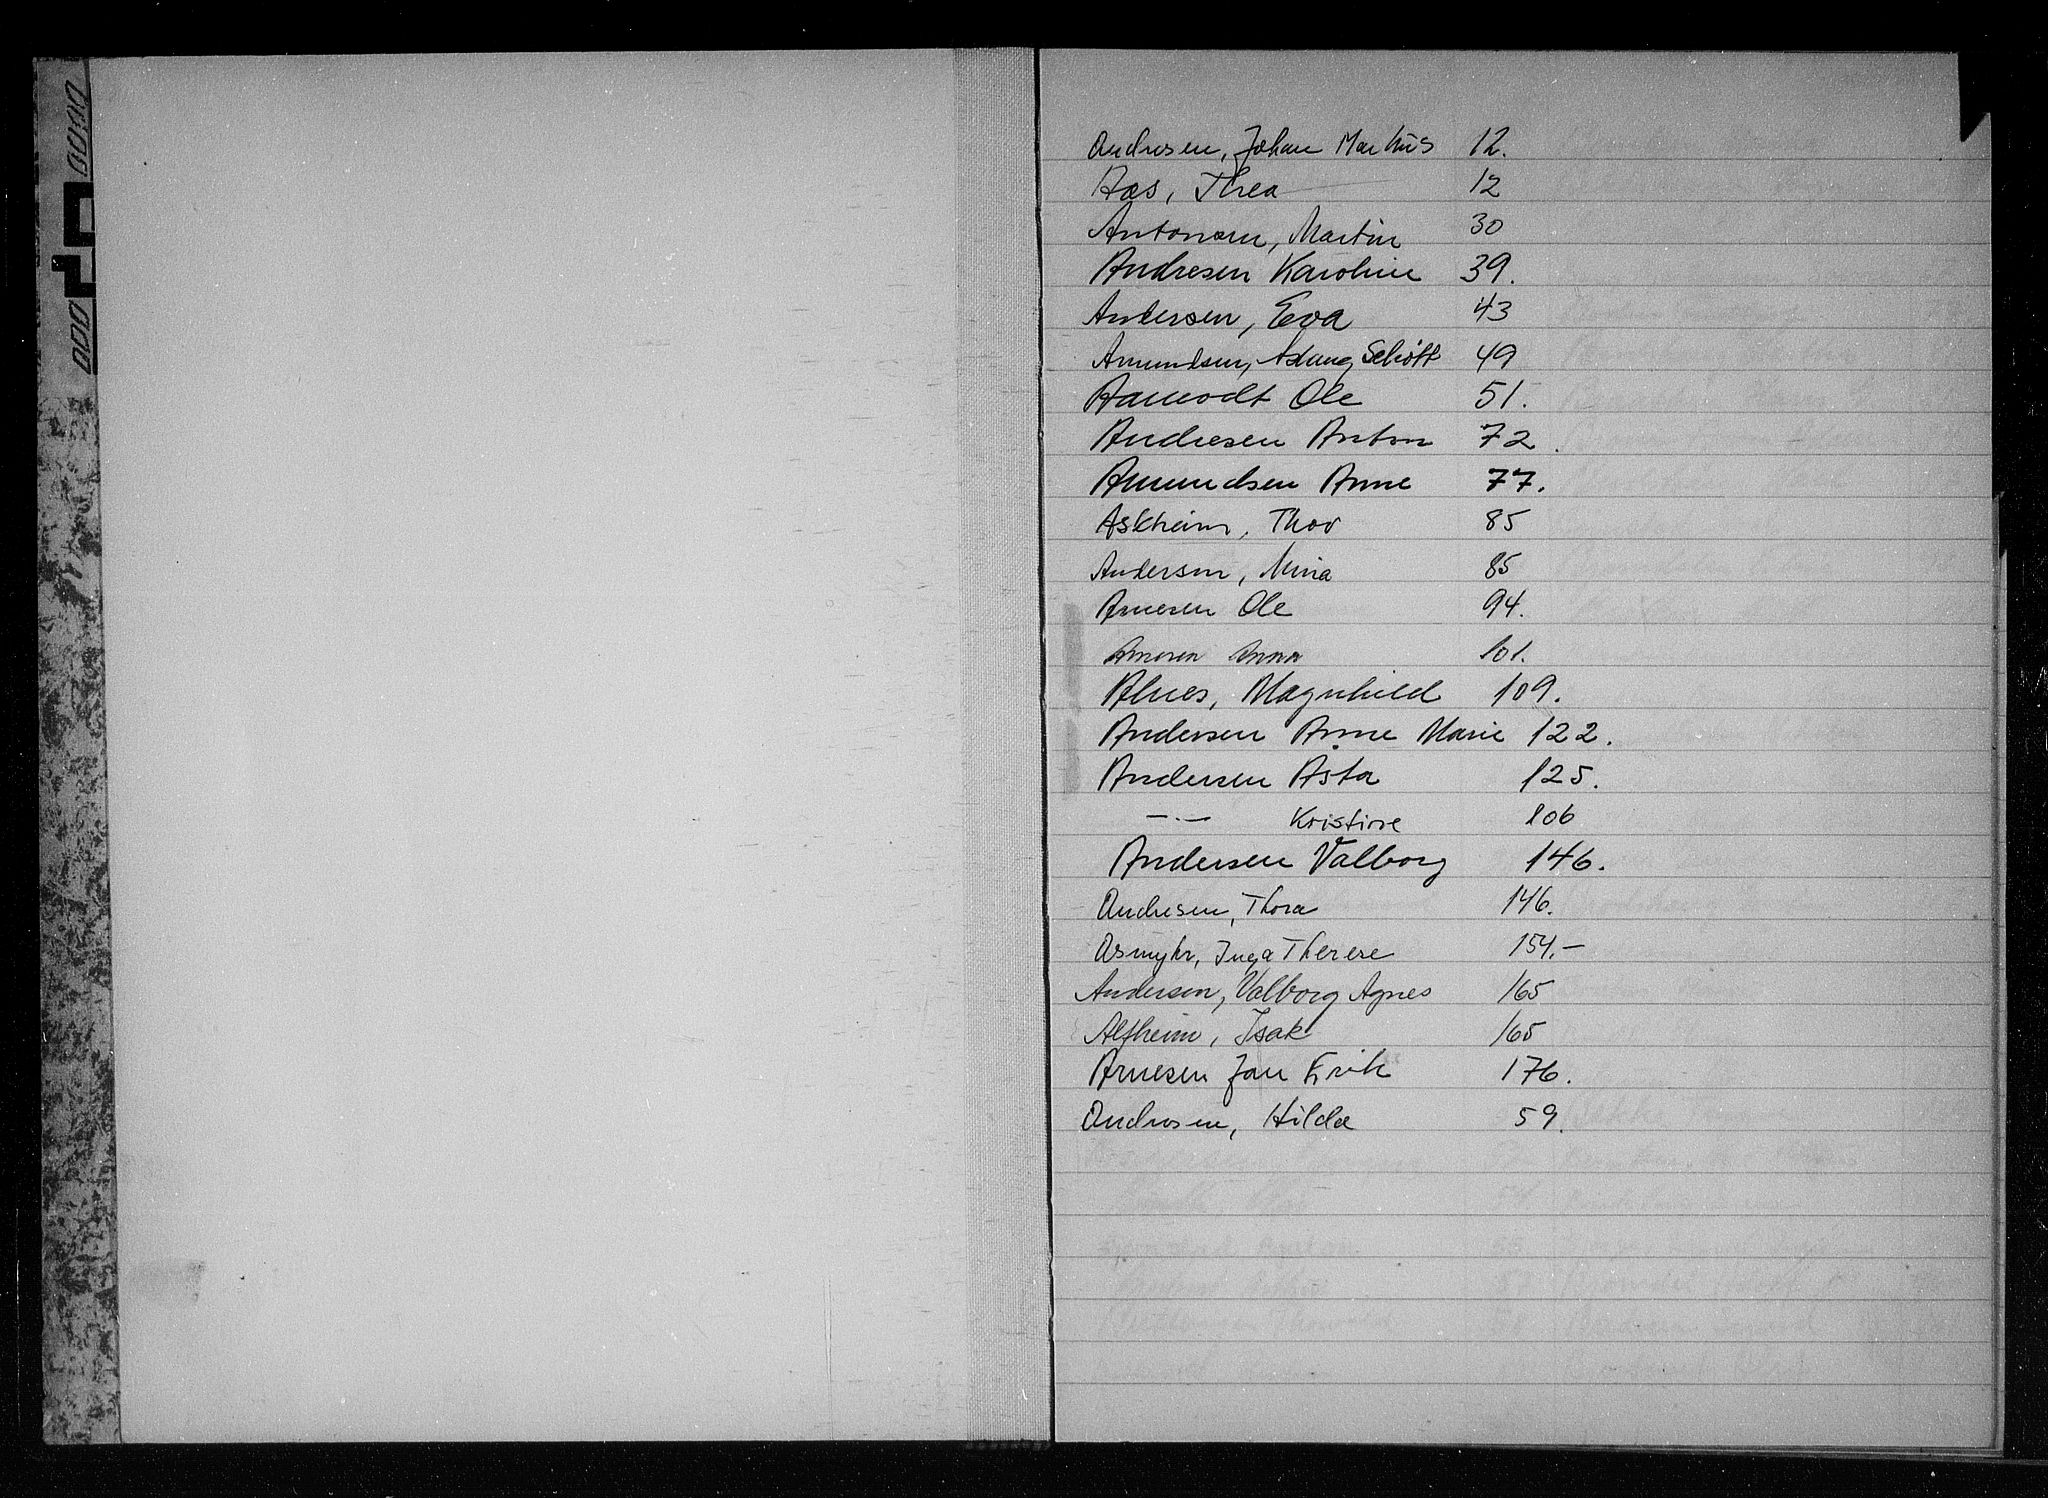 Andresen, Johan Markus 12.
Aas, Thea 12
Antonsen, Martin 30
Andresen Karoline 39.
Andersen, Eva 43
Amundsen, Aslaug Schött 49
Aamodt Ole 51.
Andresen Anton 72.
Amundsen Anne 77.
Askheim, Thor 85
Andersen, Mina 85
Arnesen Ole 94.
Arnesen Anna 101.
Alnes, Magnhild 109.
Andersen Anne Marie 122.
Andersen Åsta 125.
—.— Kristine 106
Andersen Valborg 146.
Andresen, Thora 146.
Asmyhr, Inga Therese 154.–
Andersen, Valborg Agnes 165
Alfheim, Isak 165
Arnesen Jan Erik 176.
Andresen, Hilda 59.